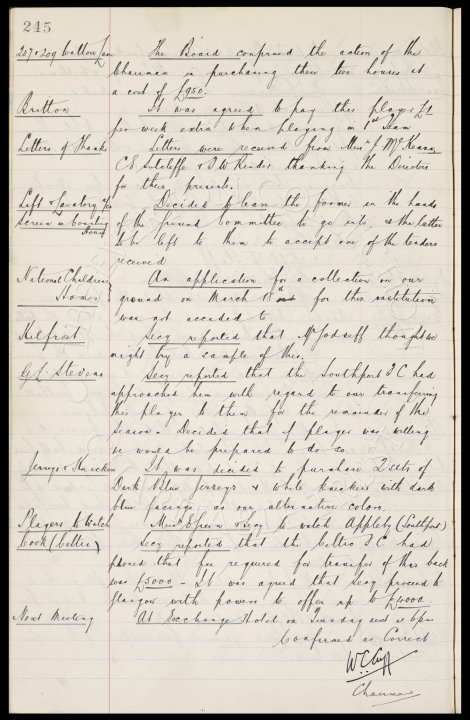 245
207 & 209 Walton Lane The Board confirmed the action of the
Chairman in purchasing these two houses at
a cost of £950.
Britton It was agreed to pay this player £1
per week extra when playing in 1st Team
Letters of Thanks Letters were received from Messrs J McKenna
C E Sutcliffe & J W Reader thanking the Directors
for their presents.
Lift & Lavatory &c Decided to leave the former in the hands
Screen in Counting House of the Ground Committee to go into, & the latter
to be left to them to accept one of the tenders
received
National Childrens An application for a collection on our
Homes ground on March for this institution
was not acceded to
Kelfrost Secy reported that Mr thought we
might try a sample of this.
G. L. Stevens Secy reported that the Southport F C had
approached him with regard to our transferring
this player to them for the remainder of the
Season. Decided that if player was willing
we would be prepared to do so.
Jerseys & Knickers It was decided to purchase 2 sets of
Dark Blue Jerseys & white knickers with dark
blue facings, as our alternative colors.
Players to Watch Messrs Green & Secy to watch Appleby (Southport)
Cook (Celtic) Secy reported that the Celtic F C had
phoned that fee required for transfer of this back
was £5000 - It was agreed that Secy proceed to
Glasgow with powers to offer up to £4000.
Next Meeting At Exchange Hotel on Tuesday next at 6pm
Confirmed as Correct
W. C. Cuff
Chairman